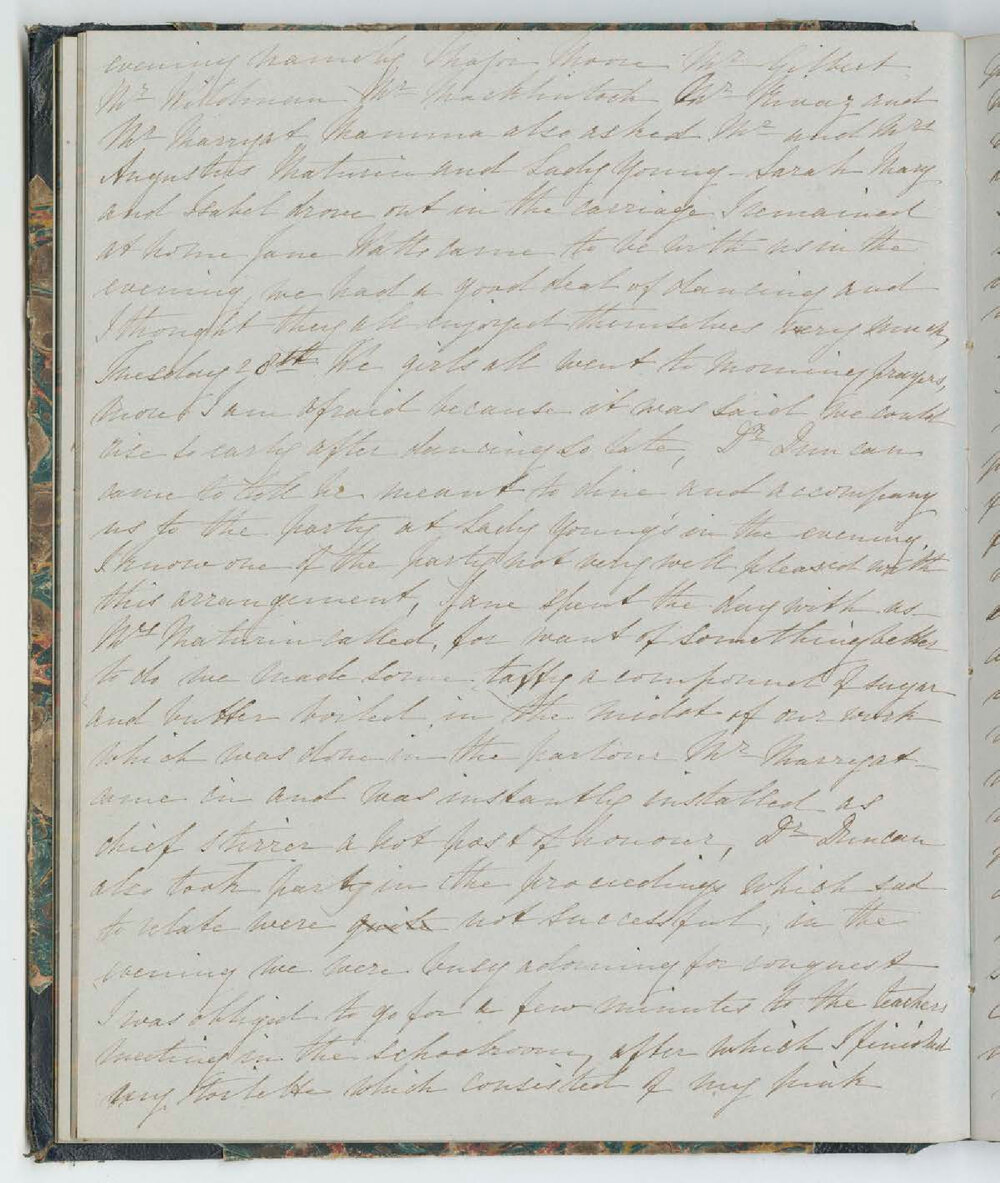 evening namely Major Moore Mr Gilbert
Mr Wildman Mr Macklintock Mr and
Mr Marryat, Mamma also asked Mr and Mrs
Augustus Maturin and Lady Young - Sarah Mary
and Isabel drove out in the carriage I remained
at home Jane Watts came to be with us in the
evening, we had a good deal of dancing and
I thought they all enjoyed themselves very much,
Tuesday 28th The girls all went to morning prayers,
more I am afraid because it was said we could
rise so early after dancing so late, Dr Duncan
came to tell he meant to dine and accompany
us to the party at Lady Young's in the evening,
I know one of the party not very well pleased with
this arrangement, Jane spent the day with us
Mrs Maturin called, for want of something better
to do we made some taffy a compound of sugar
and butter boiled, in the midst of our work
which was done in the parlour Mr Marryat
came in and was instantly installed as
chief stirrer a hot post of honour, Dr Duncan
also took part in the proceedings which sad
to relate were quite not successful, in the
evening we were busy adorning for conquest
I was obliged to go for a few minutes to the teachers
meeting in the schoolroom, after which I finished
my toilette which consisted of my pink